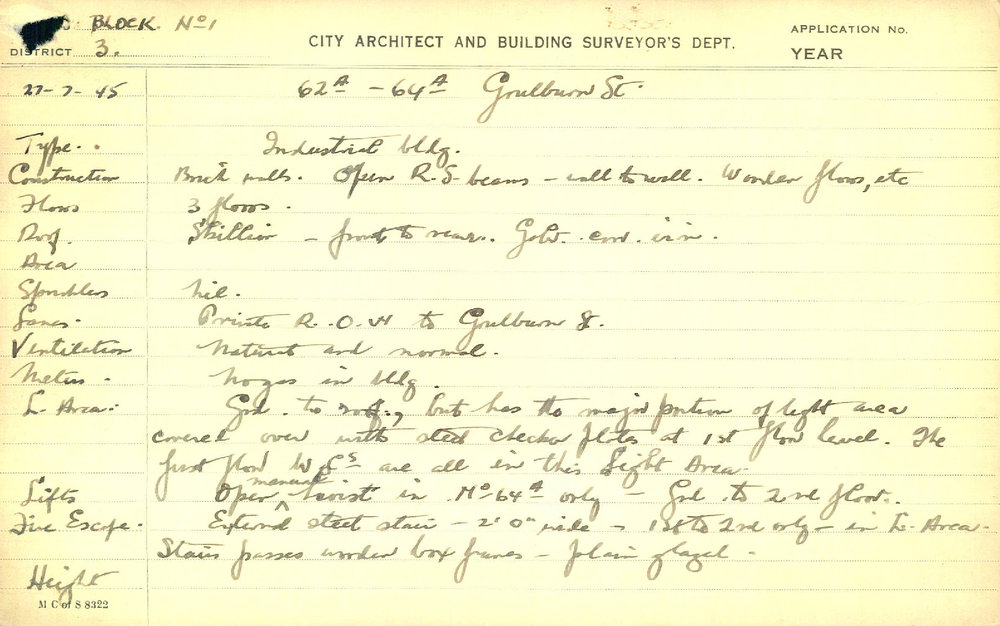 BLOCK. No 1
DISTRICT 3.
CITY ARCHITECT AND BUILDING SURVEYOR'S DEPT.
APPLICATION No.
YEAR
27-7-45 62A - 64A Goulburn St.
Type. Industrial bldg.
Construction Brick walls. Open R.S. beams - wall to wall. Wooden floors, etc
Floors 3 floors.
Roof. Skillion - front to rear. Galv. corr. iron.
Area
Sprinklers Nil.
Lanes. Private R.O.W to Goulburn St.
Ventilation Natural and normal.
Meters. No gas in bldg.
L. Area. Grd. to roof, but has the major portion of light area
covered over with steel checker plates at 1st floor level. The
first floor W.Cs are all in this Light Area.
Lifts Open manual hoist in No 64A only - Grd. to 2nd floor.
Fire Escape. External steel stair - 2' 0" wide - 1st to 2nd only - in L. Area.
Stair passes wooden box frames - plain glazed.
Height
M C of S 8322